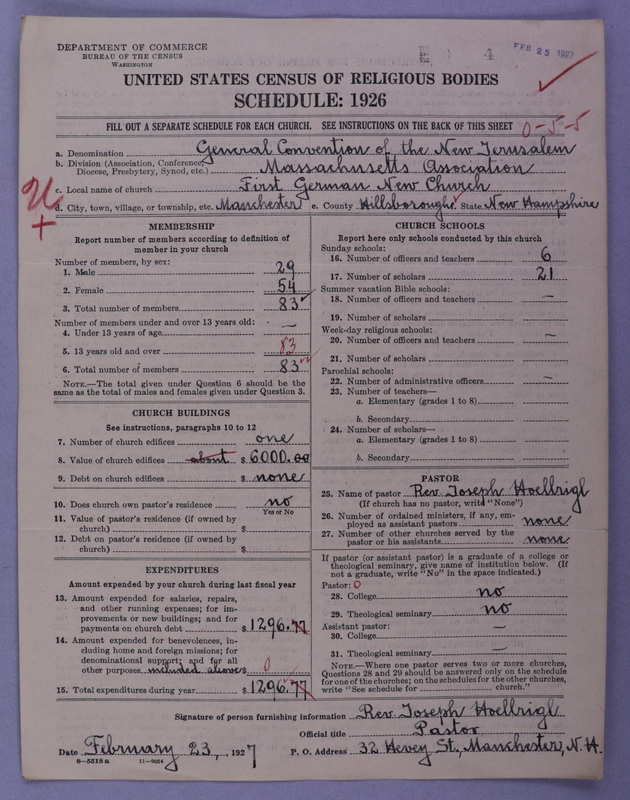 DEPARTMENT OF COMMERCE
BUREAU OF THE CENSUS
WASHINGTON
4
FEB 25 1927
UNITED STATES CENSUS OF RELIGIOUS BODIES
SCHEDULE: 1926
FILL OUT A SEPARATE SCHEDULE FOR EACH CHURCH. SEE INSTRUCTIONS ON THE BACK OF THIS SHEET
0-5-5
a. Denomination General Convention of the New Jerusalem
b. Division (Association, Conference, Diocese, Presbytery, Synod, etc.) Massachusetts Association
c. Local name of church First German New Church
d. City, town, village, or township, etc. Manchester e. County Hillsborough. State New Hampshire
MEMBERSHIP
Report number of members according to definition of
member in your church
Number of members, by sex:
1. Male 29
2. Female 54
3. Total number of members 83
Number of members under and over 13 years old:
4. Under 13 years of age —
5. 13 years old and over 83
6. Total number of members 83
NOTE.—The total given under Question 6 should be the
same as the total of males and females given under Question 3.
CHURCH BUILDINGS
See instructions, paragraphs 10 to 12
7. Number of church edifices one
8. Value of church edifices about $ 6000.00
9. Debt on church edifices $ none
10. Does church own pastor's residence no
Yes or No
11. Value of pastor's residence (if owned by
church) $
12. Debt on pastor's residence (if owned by
church) $
EXPENDITURES
Amount expended by your church during last fiscal year
13. Amount expended for salaries, repairs,
and other running expenses; for im-
provements or new buildings; and for
payments on church debt $ 1296.77
14. Amount expended for benevolences, in-
cluding home and foreign missions; for
denominational support; and for all
other purposes included above $ 0
15. Total expenditures during year $ 1296.77
CHURCH SCHOOLS
Report here only schools conducted by this church
Sunday schools:
16. Number of officers and teachers 6
17. Number of scholars 21
Summer vacation Bible schools:
18. Number of officers and teachers —
19. Number of scholars
Week-day religious schools:
20. Number of officers and teachers —
21. Number of scholars
Parochial schools:
22. Number of administrative officers —
23. Number of teachers—
a. Elementary (grades 1 to 8)
b. Secondary
24. Number of scholars—
a. Elementary (grades 1 to 8)
b. Secondary
PASTOR
25. Name of pastor Rev. Joseph Hoellrigl
(If church has no pastor, write "None")
26. Number of ordained ministers, if any, em-
ployed as assistant pastors none
27. Number of other churches served by the
pastor or his assistants none
If pastor (or assistant pastor) is a graduate of a college or
theological seminary, give name of institution below. (If
not a graduate, write "No" in the space indicated.)
Pastor: 0
28. College no
29. Theological seminary no
Assistant pastor:
30. College —
31. Theological seminary —
NOTE.—Where one pastor serves two or more churches,
Questions 28 and 29 should be answered only on the schedule
for one of the churches; on the schedules for the other churches,
write "See schedule for church."
Signature of person furnishing information Rev. Joseph Hoellrigl
Official title Pastor
Date February 23, 1927 P. O. Address 32 Hevey St., Manchester, N.H.
8—5518 a 11—9054